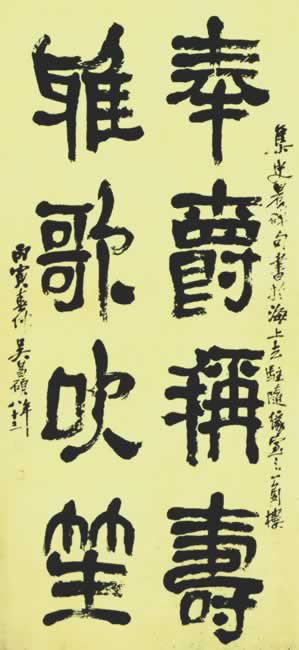 集史晨碑句書於海上去駐隨緣室之一角樓
奉爵稱壽
雅歌吹笙
丙寅春仲吳昌碩年八十三